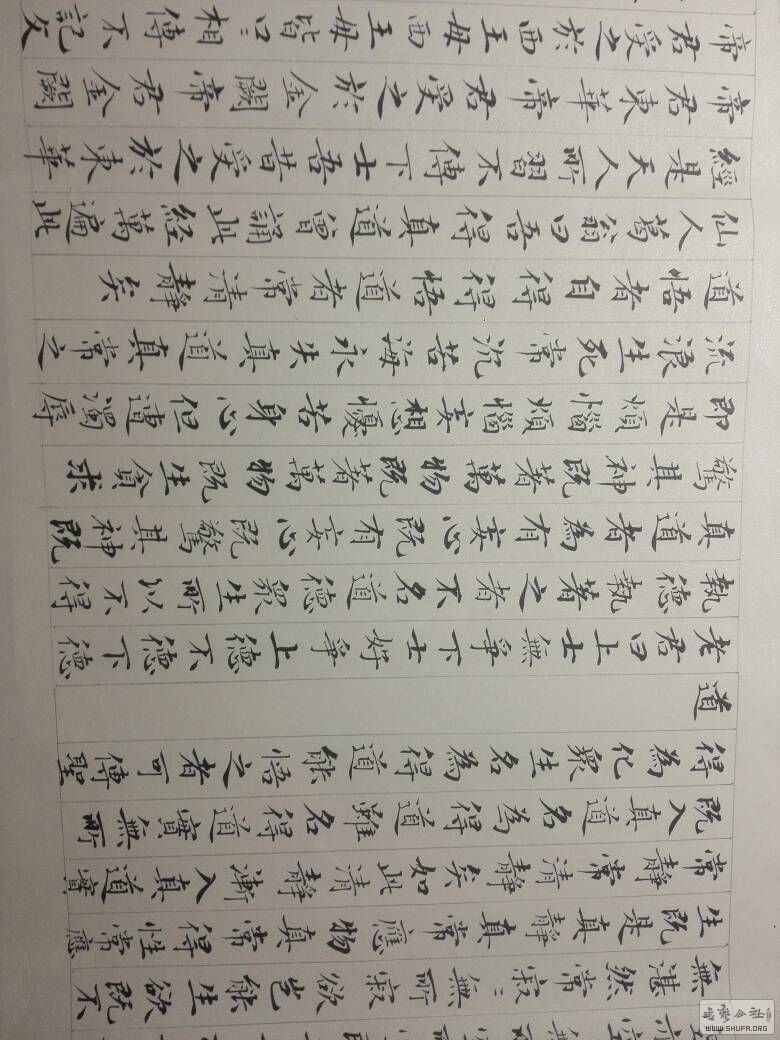 無湛然常寂〻無所寂欲豈能生欲既不
生既是真靜真常應物真常得性常應
常靜常清靜矣如此清靜漸入真道實
既入真道名為得道雖名得道實無所
得為化眾生名為得道能悟之者可傳聖
道
老君曰上士無爭下士好爭上德不德下德
執德執著之者不名道德眾生所以不得
真道者為有妄心既有妄心既驚其神既
驚其神既著萬物既著萬物既生貪求
即是煩惱煩惱妄想憂苦身心但遭濁辱
流浪生死常沉苦海永失真道真常之
道悟者自得得悟道者常清靜矣
仙人葛翁曰吾得真道曾誦此經萬遍此
經是天人所習不傳下士吾昔受之於東華
帝君東華帝君受之於金闕帝君金闕
帝君受之於西王母西王母皆口〻相傳不記文
书艺公社
WWW.SHUFA.ORG